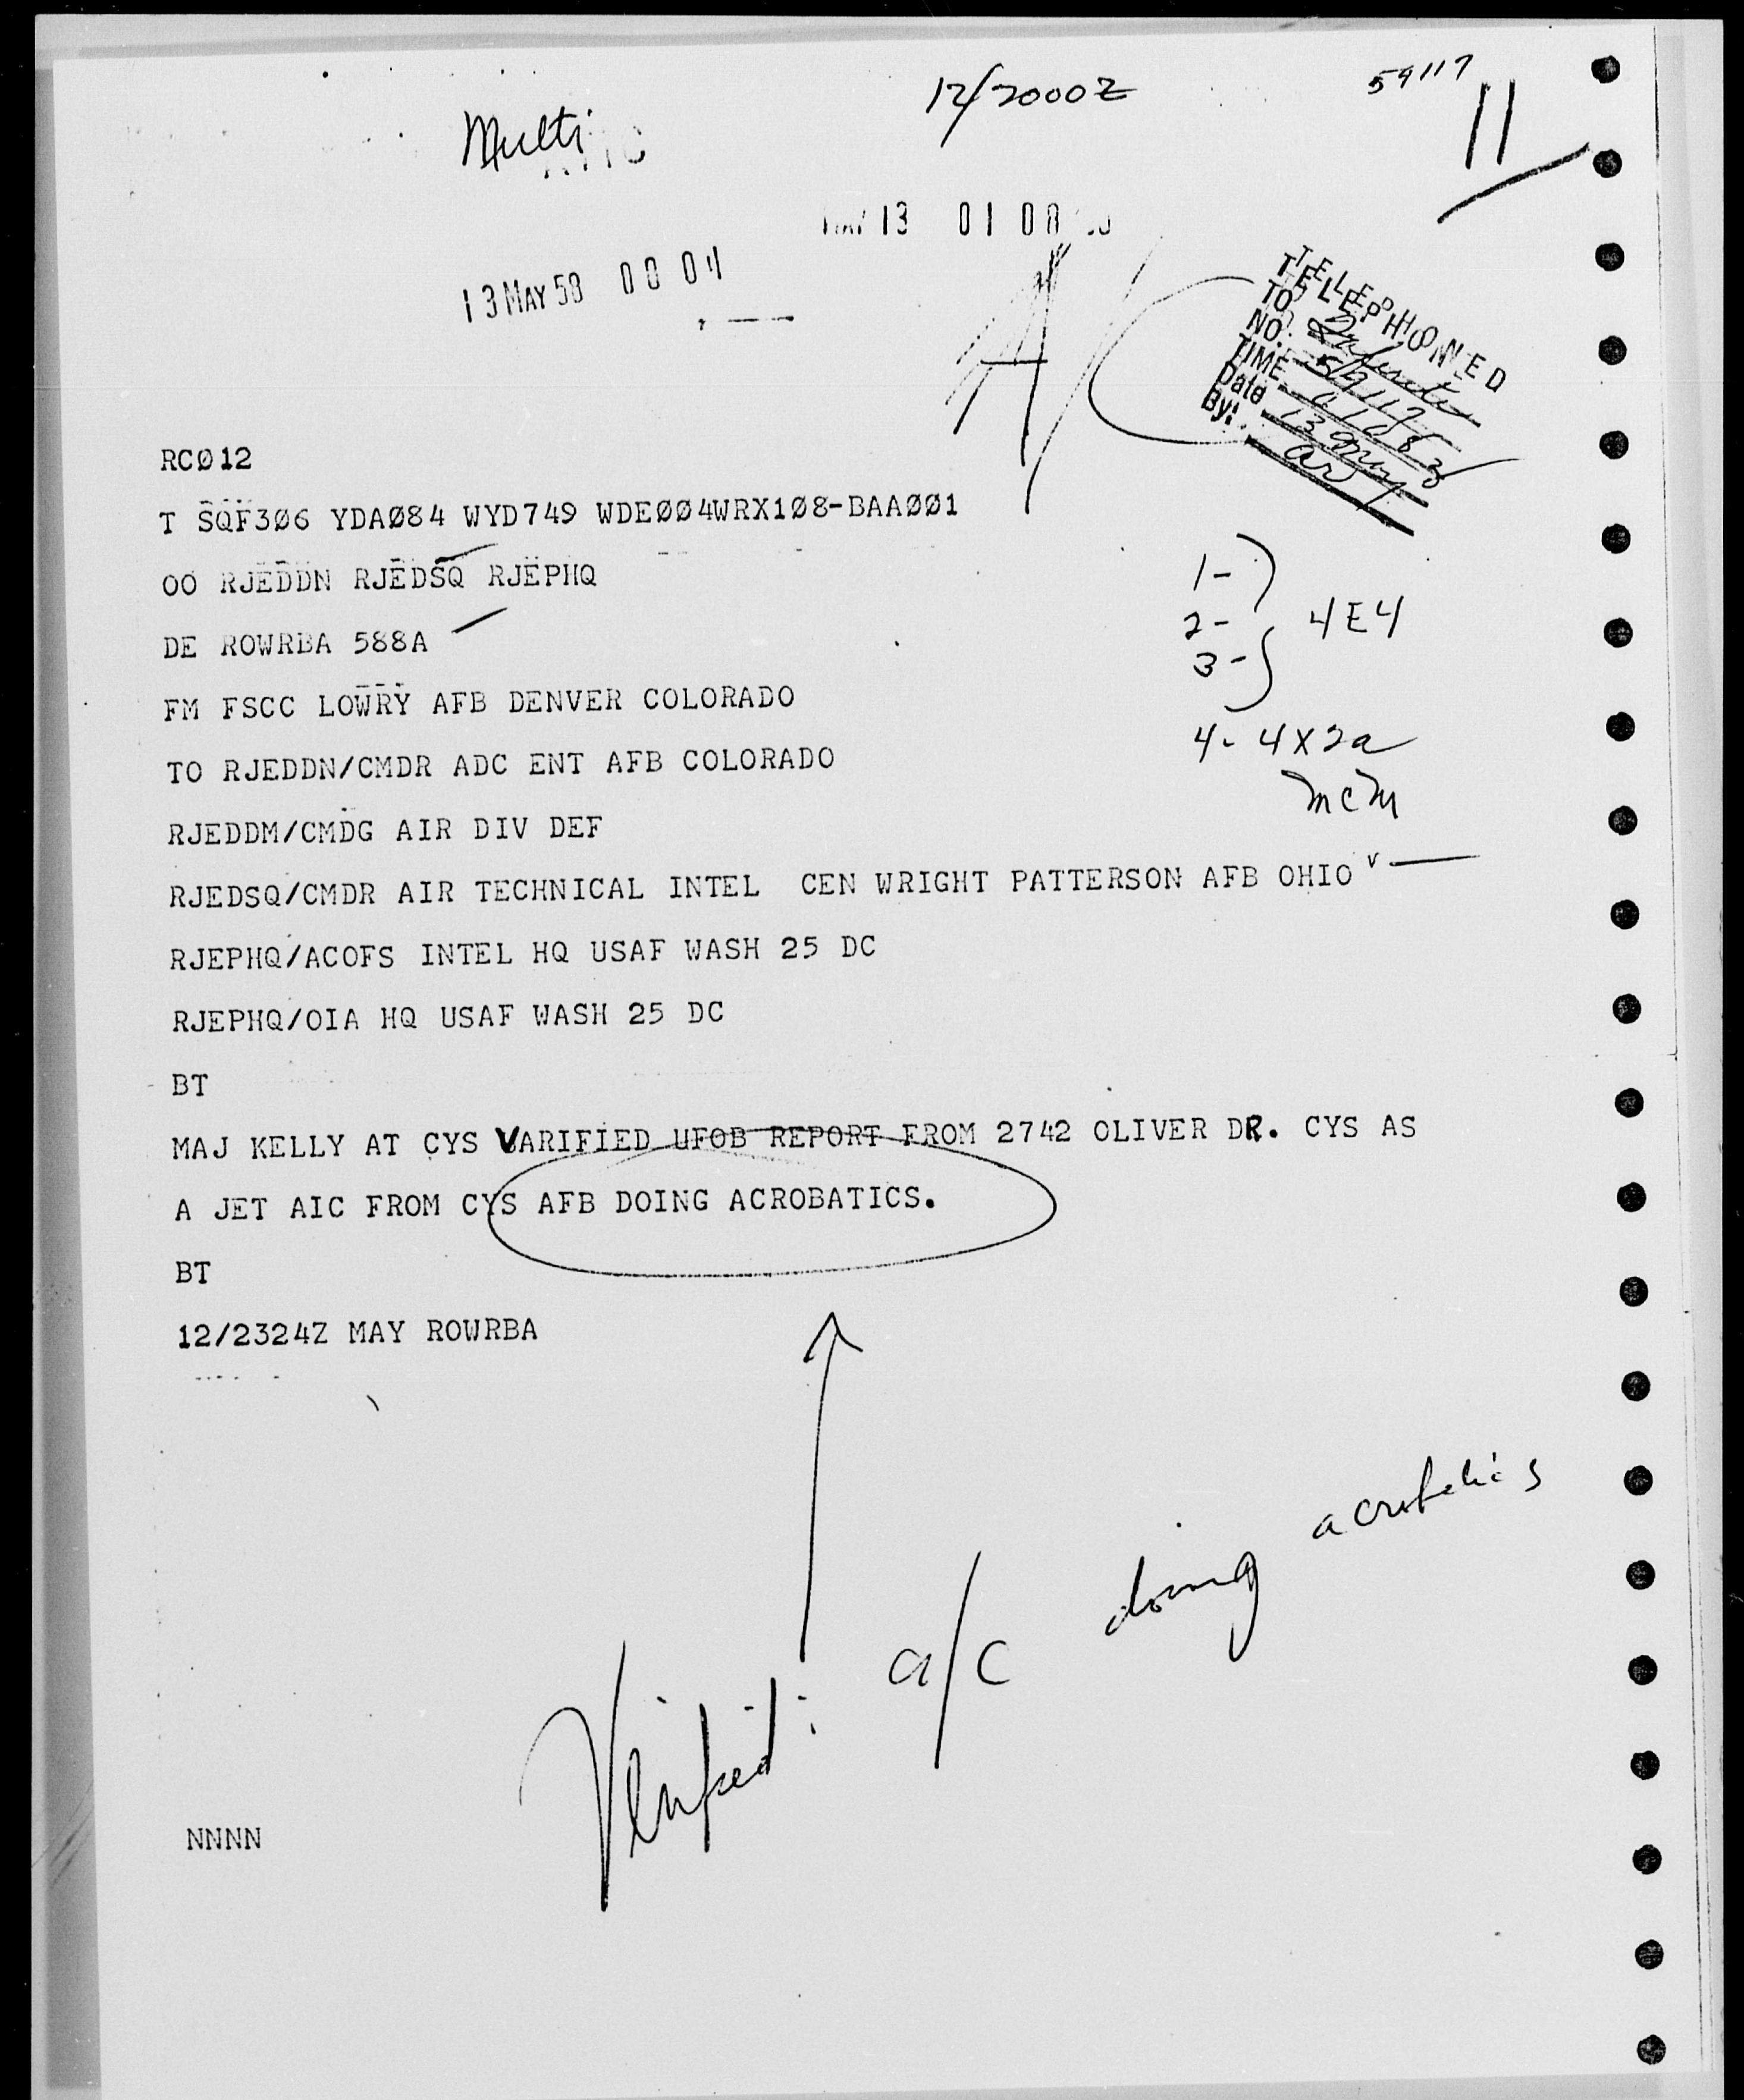 12/2000Z
59117
11
Multi
13 01 08
13 MAY 58 00 04
A/C
TELEPHONED
TO
NO. 59117
TIME
Date 13 May
By:
RCØ12
T SQF3Ø6 YDAØ84 WYD749 WDEØØ4WRX1Ø8-BAAØØ1
OO RJEDDN RJEDSQ RJEPHQ
DE ROWRBA 588A
FM FSCC LOWRY AFB DENVER COLORADO
TO RJEDDN/CMDR ADC ENT AFB COLORADO
RJEDDM/CMDG AIR DIV DEF
RJEDSQ/CMDR AIR TECHNICAL INTEL CEN WRIGHT PATTERSON AFB OHIO
RJEPHQ/ACOFS INTEL HQ USAF WASH 25 DC
RJEPHQ/OIA HQ USAF WASH 25 DC
1-
2- 4E4
3-
4- 4X2a
McM
BT
MAJ KELLY AT CYS VARIFIED UFOB REPORT FROM 2742 OLIVER DR. CYS AS
A JET AIC FROM CYS AFB DOING ACROBATICS.
BT
12/2324Z MAY ROWRBA
Verified: a/c doing acrobatics
NNNN